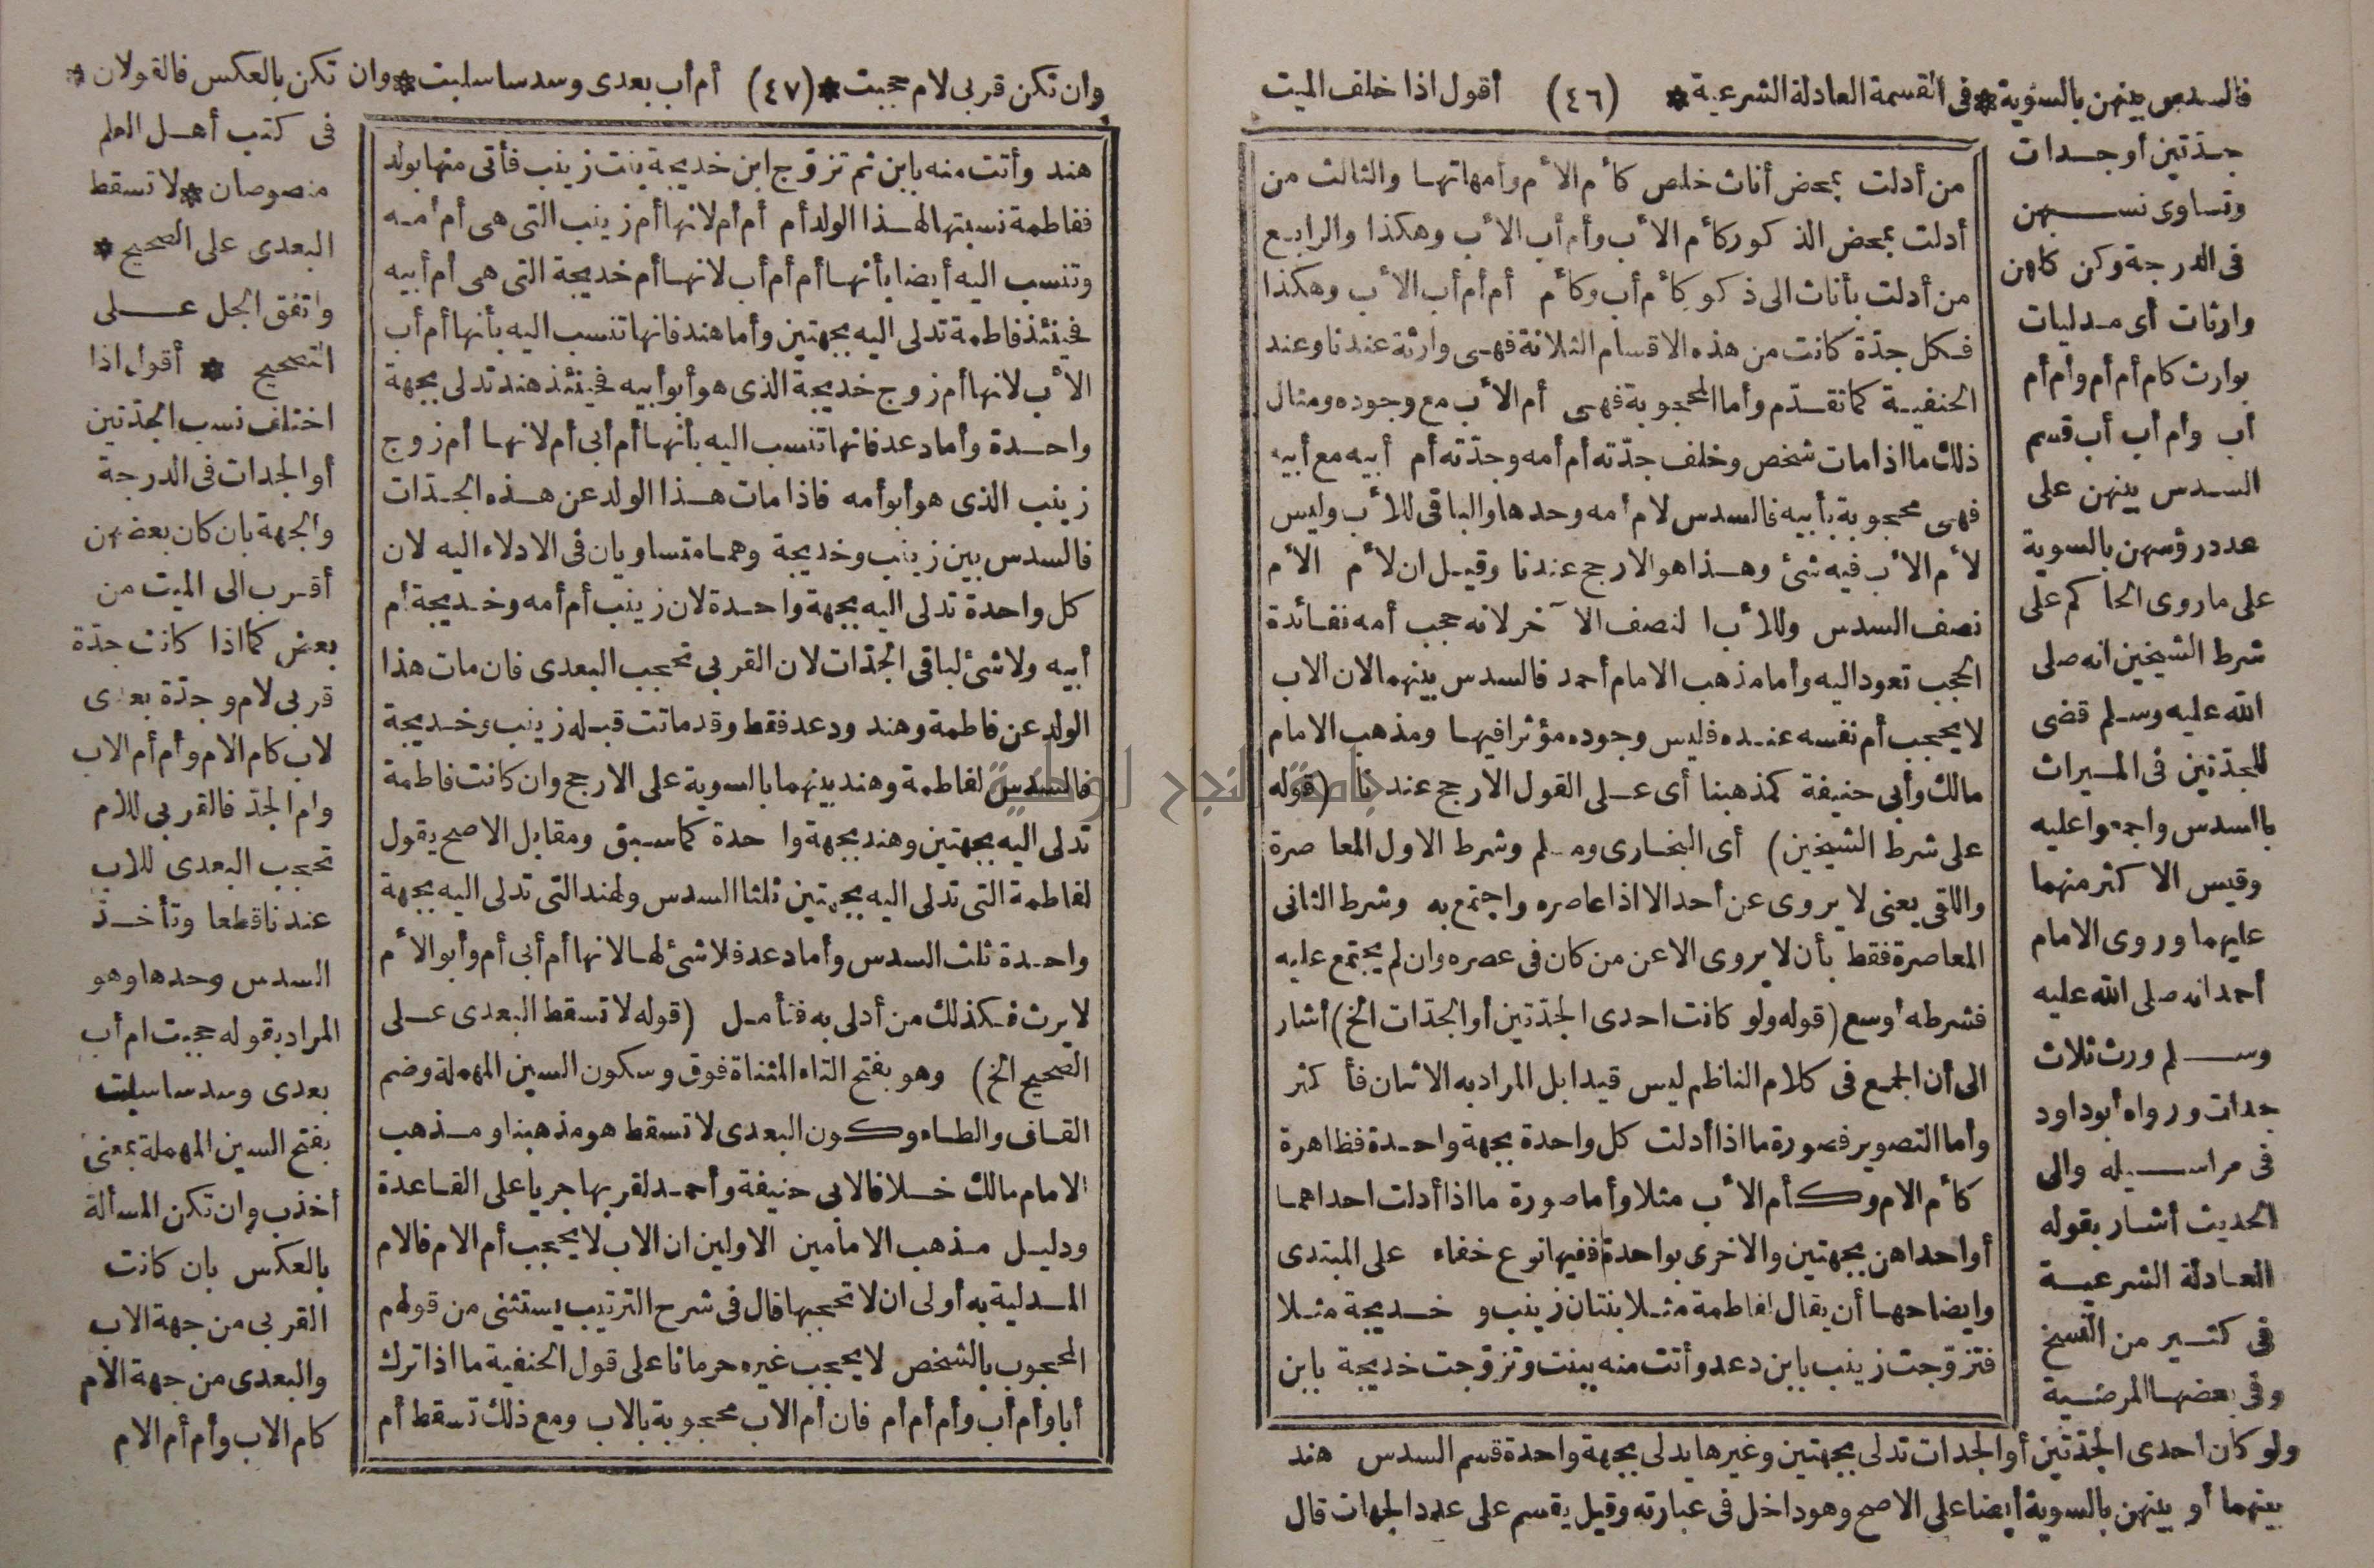 فالسدس بينهن بالسوية * فى القسمة العادلة الشرعية * (٤٦) أقول اذا خلف الميت
جدّتين أو جدات
وتساوى نسبهن
فى الدرجة وكن كلهن
وارثات أى مدليات
بوارث كام أم أم وأم أم
أب وأم أب أب قسم
السدس بينهن على
عدد رؤسهن بالسوية
على ما روى الحاكم على
شرط الشيخين انه صلى
الله عليه وسلم قضى
للجدّتين فى الميراث
بالسدس واجمعوا عليه
وقيس الاكثر منهما
عليهما وروى الامام
أحمد انه صلى الله عليه
وسلم ورث ثلاث
جدات ورواه أبو داود
فى مراسيله والى
الحديث أشار بقوله
العادلة الشرعية
فى كثير من النسخ
وفى بعضها المرضية
ولو كان احدى الجدّتين أو الجدات تدلى بجهتين وغيرها يدلى بجهة واحدة قسم السدس
بينهما أو بينهن بالسوية أيضا على الاصح وهو داخل فى عبارته وقيل يقسم على عدد الجهات قال
من أدلت بمحض أناث خلص كأم الأم وأمهاتها والثالث من
أدلت بمحض الذكور كأم الأب وأم أب الأب وهكذا والرابع
من أدلت بأناث الى ذكور كأم أب وكأم أم أم أب الأب وهكذا
فكل جدّة كانت من هذه الاقسام الثلاثة فهى وارثة عندنا وعند
الحنفية كما تقدّم وأما المحجوبة فهى أم الأب مع وجوده ومثال
ذلك ما اذا مات شخص وخلف جدّته أم أمه وجدّته أم أبيه مع أبيه
فهى محجوبة بأبيه فالسدس لام أمه وحدها والباقى للأب وليس
لأم الأب فيه شئ وهذا هو الارجح عندنا وقيل ان لأم الأم
نصف السدس وللأب النصف الآخر لانه حجب أمه نفائدة
الحجب تعود اليه وأما مذهب الامام أحمد فالسدس بينهما لان الاب
لا يحجب أم نفسه عنده فليس وجوده مؤثرا فيها ومذهب الامام
مالك وأبى حنيفة كمذهبنا أى على القول الارجح عندنا (قوله
على شرط الشيخين) أى البخارى ومسلم وشرط الاول المعاصرة
واللقى يعنى لا يروى عن أحد الا اذا عاصره واجتمع به وشرط الثانى
المعاصرة فقط بأن لا يروى الا عن من كان فى عصره وان لم يجتمع عليه
فشرطه أوسع (قوله ولو كانت احدى الجدّتين أو الجدّات الخ) أشار
الى أن الجمع فى كلام الناظم ليس قيدا بل المراد به الاثنان فأكثر
وأما التصوير فصورة ما اذا أدلت كل واحدة بجهة واحدة فظاهرة
كأم الام وكأم الأب مثلا وأما صورة ما اذا أدلت احداهما
أو احداهن بجهتين والاخرى بواحدة ففيها نوع خفاء على المبتدى
وايضاحها أن يقال لفاطمة مثلا بنتان زينب و خديجة مثلا
فتزوّجت زينب بابن دعد وأتت منه ببنت وتزوّجت خديجة بابن
هند
وان تكن قربى لام حجبت * (٤٧) أم أب بعدى وسدسا سلبت * وان تكن بالعكس فالقولان *
هند وأتت منه بابن ثم تزوّج ابن خديجة بنت زينب فأتى منها بولد
ففاطمة نسبتها لهذا الولد أم أم أم لانها أم زينب التى هى أم أمه
وتنسب اليه أيضا بأنها أم أم أب لانها أم خديجة التى هى أم أبيه
فحينئذ فاطمة تدلى اليه بجهتين وأما هند فانها تنسب اليه بأنها أم أب
الأب لانها أم زوج خديجة الذى هو أبو أبيه فحينئذ هند تدلى بجهة
واحدة وأما دعد فانها تنسب اليه بأنها أم أبى أم لانها أم زوج
زينب الذى هو أبو أمه فاذا مات هذا الولد عن هذه الجدّات
فالسدس بين زينب وخديجة وهما متساويان فى الادلاء اليه لان
كل واحدة تدلى اليه بجهة واحدة لان زينب أم أمه وخديجة أم
أبيه ولا شئ لباقى الجدّات لان القربى تحجب البعدى فان مات هذا
الولد عن فاطمة وهند ودعد فقط وقد ماتت قبله زينب وخديجة
فالسدس لفاطمة وهند بينهما بالسوية على الارجح وان كانت فاطمة
تدلى اليه بجهتين وهند بجهة واحدة كما سبق ومقابل الاصح يقول
لفاطمة التى تدلى اليه بجهتين ثلثا السدس ولهند التى تدلى اليه بجهة
واحدة ثلث السدس وأما دعد فلا شئ لها لانها أم أبى أم وأبو الأم
لا يرث فكذلك من أدلى به فتأمل (قوله لا تسقط البعدى على
الصحيح الخ) وهو بفتح التاء المثناة فوق وسكون السين المهملة وضم
القاف والطاء وكون البعدى لا تسقط هو مذهبنا ومذهب
الامام مالك خلافا لابى حنيفة وأحمد لقربها جريا على القاعدة
ودليل مذهب الامامين الاولين ان الاب لا يحجب أم الام فالام
المدلية به أولى ان لا تحجبها قال فى شرح الترتيب يستثنى من قولهم
المحجوب بالشخص لا يحجب غيره حرمانا على قول الحنفية ما اذا ترك
أبا وأم أب وأم أم أم فان أم الاب محجوبة بالاب ومع ذلك تسقط أم
فى كتب أهل العلم
منصوصان * لا تسقط
البعدى على الصحيح *
واتفق الجل على
التصحيح * أقول اذا
اختلف نسب الجدّتين
أو الجدات فى الدرجة
والجهة بان كان بعضهن
أقرب الى الميت من
بعض كما اذا كانت جدّة
قربى لام وجدّة بعدى
لاب كام الام وأم أم الاب
وام الجدّ فالقربى للام
تحجب البعدى للاب
عندنا قطعا وتأخذ
السدس وحدها وهو
المراد بقوله حجبت ام أب
بعدى وسدسا سلبت
بفتح السين المهملة بمعنى
أخذت وان تكن المسألة
بالعكس بان كانت
القربى من جهة الاب
والبعدى من جهة الام
كام الاب وأم أم الام
جامعة النجاح الوطنية